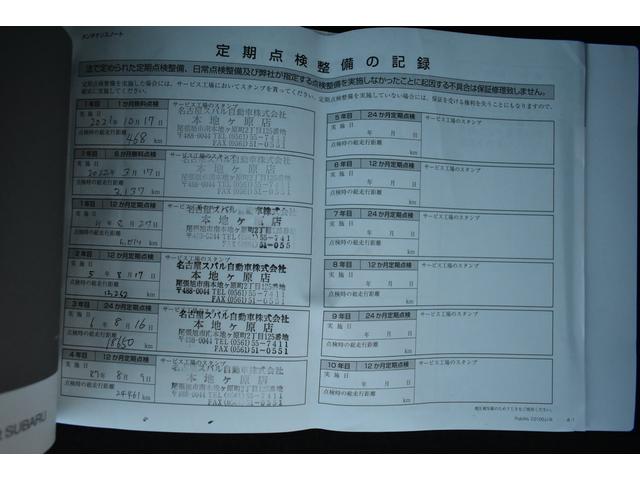 メンテナンスノート
定期点検整備の記録
法で定められた定期点検整備、日常点検整備及び弊社が指定する点検整備を実施しなかったことに起因する不具合は保証修理致しません。
定期点検整備を実施した場合には、サービス工場においてスタンプを貰ってください。定期点検整備を実施していない場合は、保証を受ける権利を失うことにもなりますので、
確実に実施してください。
1年目 1か月無料点検 サービス工場のスタンプ
実施日 2021年10月17日
点検時の総走行距離
468 km
名古屋スバル自動車株式会社
本地ヶ原店
尾張旭市南本地ヶ原町2丁目125番地
〒488-0044 TEL(0561)55-7411
FAX(0561)51-0551
1年目 6か月無料点検 サービス工場のスタンプ
実施日 2022年3月17日
点検時の総走行距離
3,137 km
名古屋スバル自動車株式会社
本地ヶ原店
尾張旭市南本地ヶ原町2丁目125番地
〒488-0044 TEL(0561)55-7411
FAX(0561)51-0551
1年目 12か月定期点検 サービス工場のスタンプ
実施日
点検時の総走行距離
km
名古屋スバル 車株式会
本地ヶ原店
2年目 12か月定期点検 サービス工場のスタンプ
実施日 5年8月17日
点検時の総走行距離
km
名古屋スバル自動車株式会社
本地ヶ原店
尾張旭市南本地ヶ原町2丁目125番地
〒488-0044 TEL(0561)55-7411
FAX(0561)51-0551
3年目 24か月定期点検 サービス工場のスタンプ
実施日 6年8月16日
点検時の総走行距離
18650 km
名古屋スバル自動車株式会社
本地ヶ原店
尾張旭市南本地ヶ原町2丁目125番地
〒488-0044 TEL(0561)55-7411
FAX(0561)51-0551
4年目 12か月定期点検 サービス工場のスタンプ
実施日 8月9日
点検時の総走行距離
24461 km
名古屋スバル自動車株式会社
本地ヶ原店
尾張旭市南本地ヶ原町2丁目125番地
〒488-0044 TEL(0561)55-7411
FAX(0561)51-0551
5年目 24か月定期点検 サービス工場のスタンプ
実施日 年 月 日
点検時の総走行距離
km
6年目 12か月定期点検 サービス工場のスタンプ
実施日 年 月 日
点検時の総走行距離
km
7年目 24か月定期点検 サービス工場のスタンプ
実施日 年 月 日
点検時の総走行距離
km
8年目 12か月定期点検 サービス工場のスタンプ
実施日 年 月 日
点検時の総走行距離
km
9年目 24か月定期点検 サービス工場のスタンプ
実施日 年 月 日
点検時の総走行距離
km
10年目 12か月定期点検 サービス工場のスタンプ
実施日 年 月 日
点検時の総走行距離
km
SUBARU